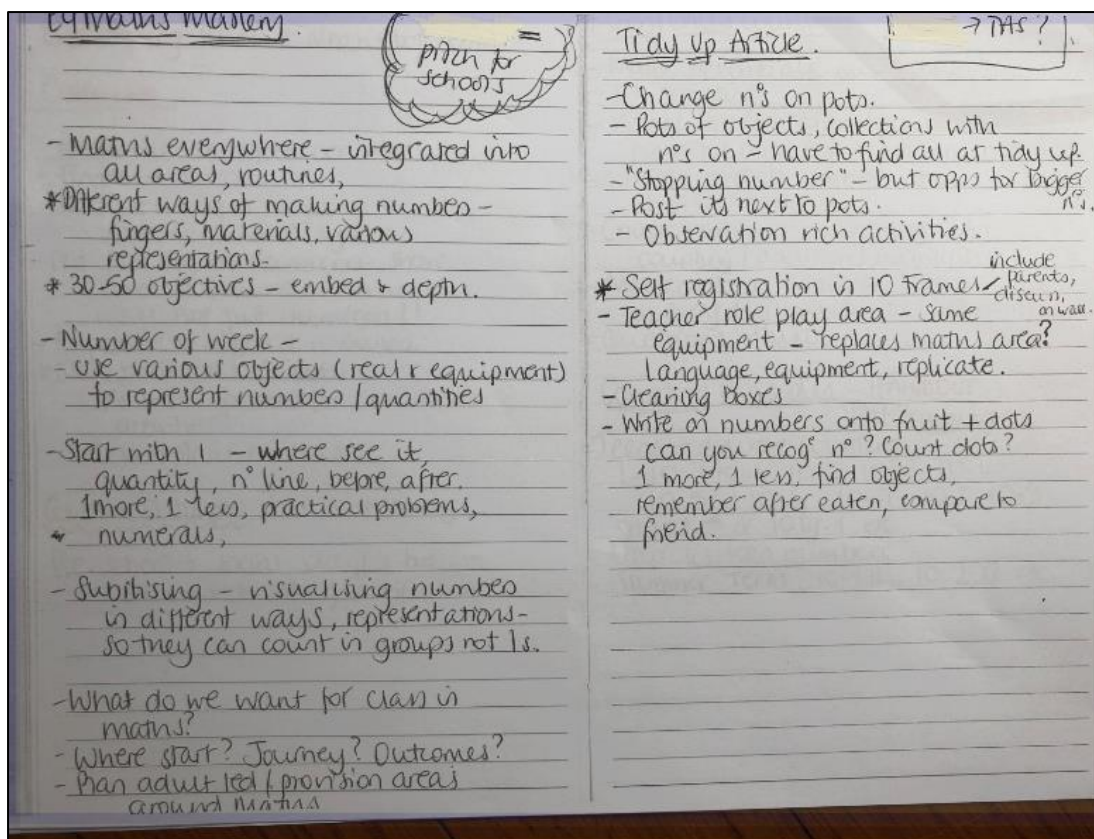 EY Maths Mastery.
=
Pitch for
schools
- Maths everywhere - integrated into
all areas, routines,
* Different ways of making number -
fingers, materials, various
representations.
* 30-50 objectives - embed & depth.
- Number of week -
- use various objects (real & equipment)
to represent number / quantities
- Start with 1 - where see it,
quantity, n° line, before, after,
1 more, 1 less, practical problems,
numerals,
- Subitising - visualising number
in different ways, representations -
so they can count in groups not 1s.
- What do we want for class in
maths?
- Where start? Journey? Outcomes?
- Plan adult led / provision areas
around maths
Tidy Up Article.
→ TAs?
- Change n°s on pots.
- Pots of objects, collections with
n°s on - have to find all at tidy up.
- "Stopping number" - but opps for bigger
n°s.
- Post its next to pots.
- Observation rich activities.
* Self registration in 10 frames / include
parents,
discuss,
on wall.
- Teacher role play area - same
equipment - replaces maths area?
language, equipment, replicate.
- Cleaning boxes
- Write on numbers onto fruit + dots
can you recog n°? Count dots?
1 more, 1 less, find objects,
remember after eaten, compare to
friend.